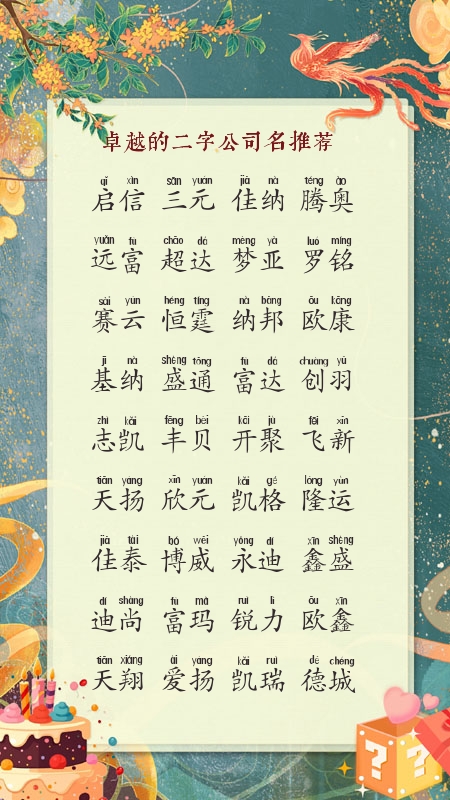 卓越的二字公司名推荐
qǐ xìn sān yuán jiā nà téng ào
启信 三元 佳纳 腾奥
yuǎn fù chāo dá mèng yà luó míng
远富 超达 梦亚 罗铭
sài yún héng tíng nà bāng ōu kāng
赛云 恒霆 纳邦 欧康
jī nà shèng tōng fù dá chuàng yǔ
基纳 盛通 富达 创羽
zhì kǎi fēng bèi kāi jù fēi xīn
志凯 丰贝 开聚 飞新
tiān yáng xīn yuán kǎi gé lóng yùn
天扬 欣元 凯格 隆运
jiā tài bó wēi yǒng dí xīn shèng
佳泰 博威 永迪 鑫盛
dí shàng fù mǎ ruì lì ōu xīn
迪尚 富玛 锐力 欧鑫
tiān xiáng ài yáng kǎi ruì dé chéng
天翔 爱扬 凯瑞 德城
? ?